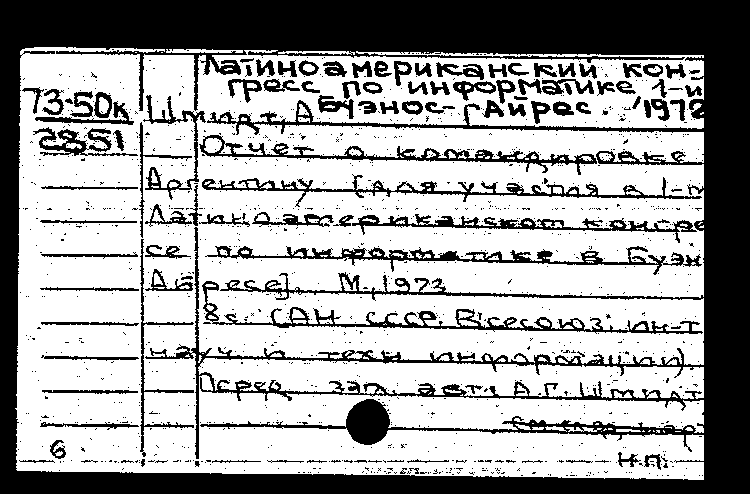 Латиноамериканский кон=
гресс по информатике 1-й
Буэнос-Айрес. 1972
73-50к
2851
Шмидт, А
Отчет о командировке
Аргентину [для участия в 1-м
Латиноамериканском конгре
се по информатике в Буэн
Айресе]. М., 1973
8с. (АН СССР. Всесоюз. ин-т
науч и техн информации).
Перед загл. авт: А.Г. Шмидт
см след. кар
6
н.п.